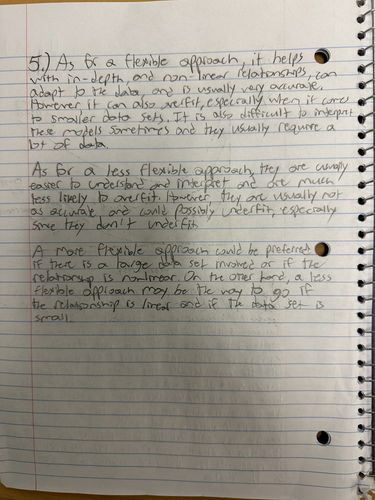 5.) As for a flexible approach, it helps
with in-depth, and non-linear relationships, can
adapt to the data, and is usually very accurate.
However it can also overfit, especially when it comes
to smaller data sets. It is also difficult to interpret
these models sometimes and they usually require a
lot of data.
As for a less flexible approach, they are usually
easier to understand and interpret and are much
less likely to overfit. However, they are usually not
as accurate and could possibly underfit, especially
since they don't underfit.
A more flexible approach could be preferred
if there is a large data set involved or if the
relationship is nonlinear. On the other hand, a less
flexible approach may be the way to go if
the relationship is linear and if the data set is
small.